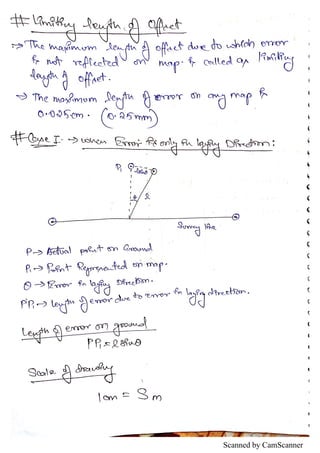 # Limiting length of Offset
→ The maximum length of offset due to which error
is not reflected on map. is called as limiting
length of offset.
→ The maximum length of error on any map is
0.025cm. (0.25mm)
# Case I. → when Error is only in laying Direction:
P₁ P
θ l
Survey line
P → Actual point on Ground
P₁ → Point Represented on map.
θ → Error in laying Direction.
PP₁ → length of error due to error in laying direction.
Length of error on ground
PP₁ = l sinθ
Scale of drawing
1cm = S m
Scanned by CamScanner